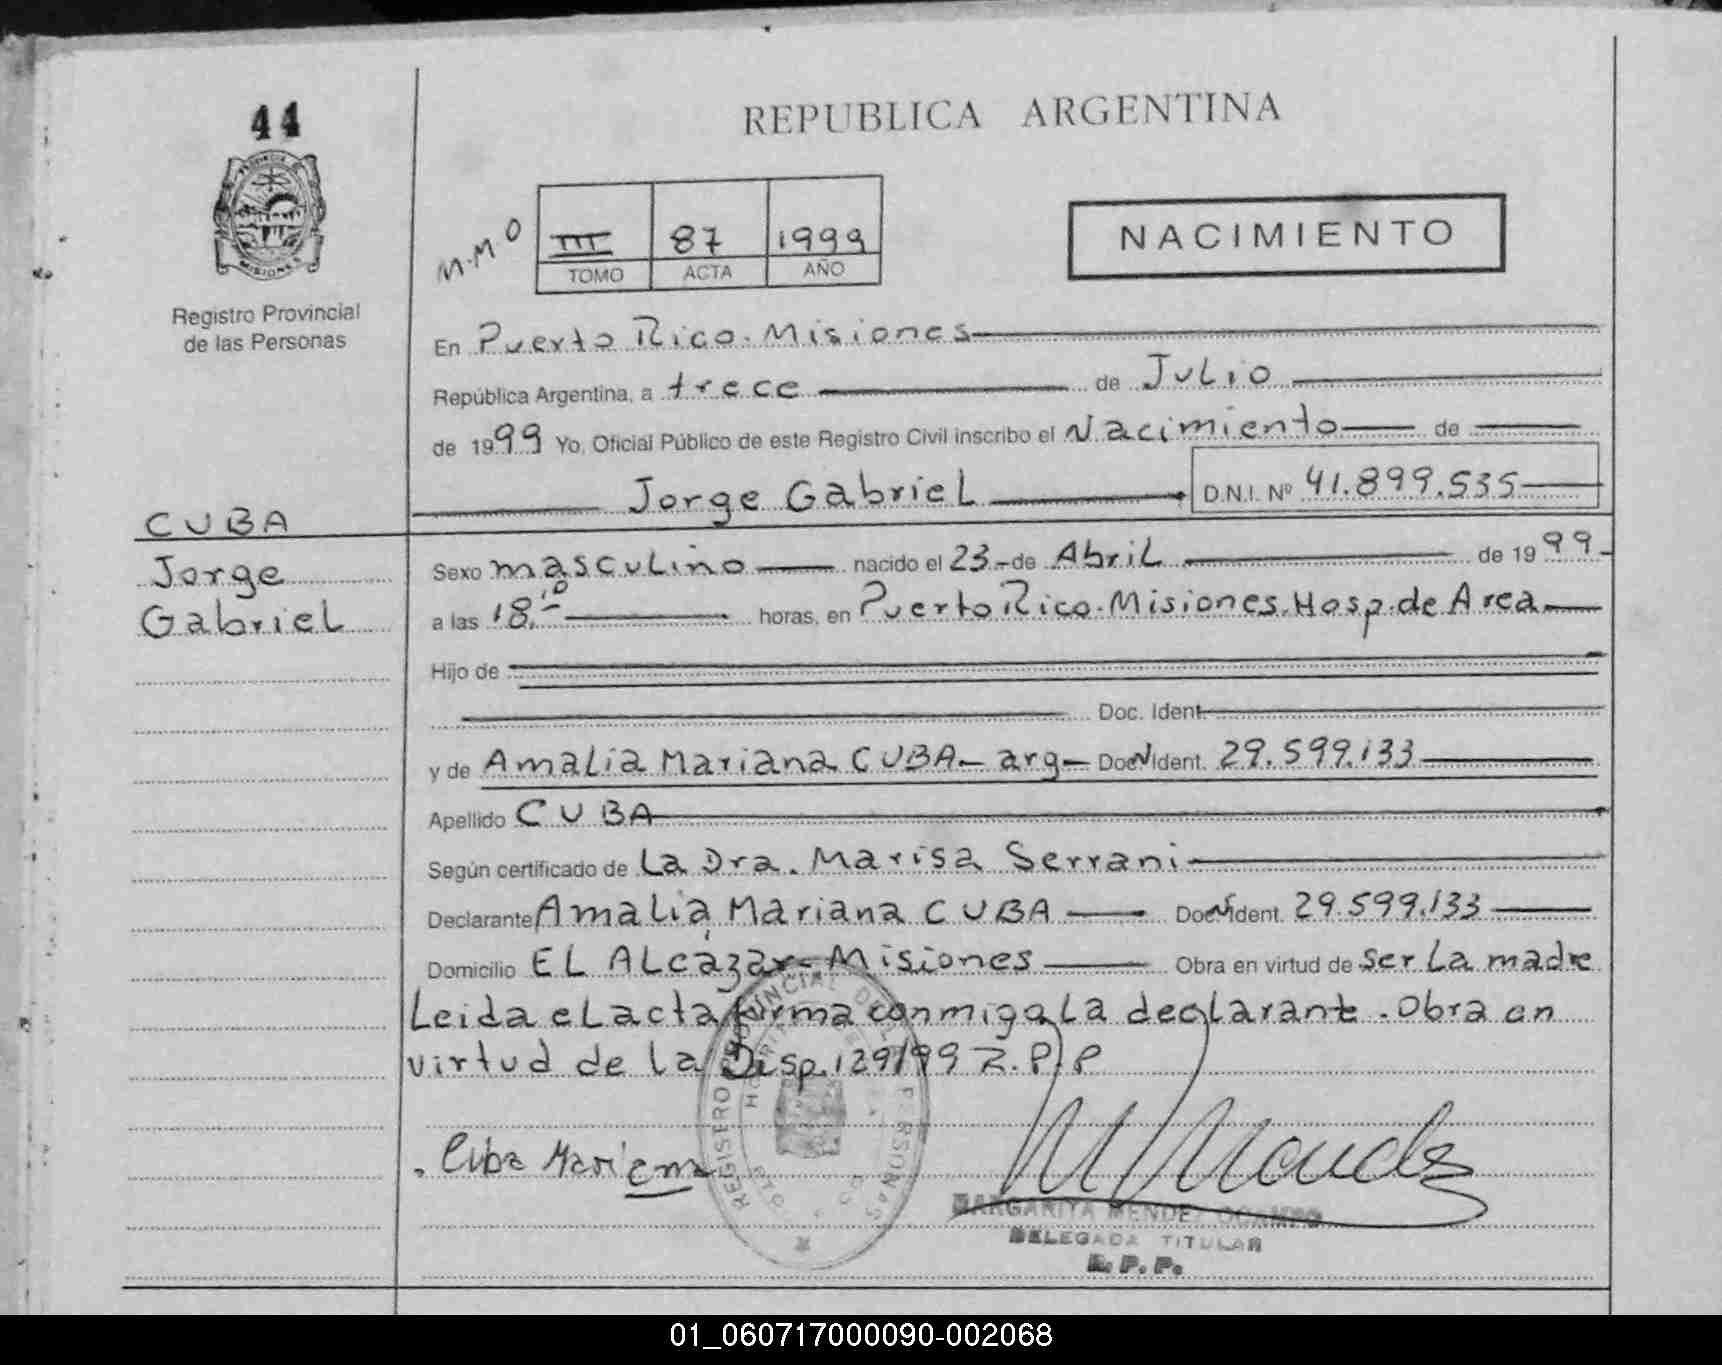 44
REPUBLICA ARGENTINA
PROVINCIA DE
MISIONES
Registro Provincial
de las Personas
M.M.O
III 87 1999
TOMO ACTA AÑO
NACIMIENTO
En Puerto Rico. Misiones
República Argentina, a trece de Julio
de 1999 Yo, Oficial Público de este Registro Civil inscribo el Nacimiento de
Jorge Gabriel D.N.I. Nº 41.899.535
CUBA
Jorge
Gabriel
Sexo masculino nacido el 23 de Abril de 1999
a las 18.10 horas, en Puerto Rico. Misiones. Hosp. de Area
Hijo de
Doc. Ident.
y de Amalia Mariana CUBA - arg - Doc. Ident. 29.599.133
Apellido CUBA
Según certificado de La Dra. Marisa Serrani
Declarante Amalia Mariana CUBA Doc. Ident. 29.599.133
Domicilio EL Alcázar - Misiones Obra en virtud de ser La madre
Leida el acta firma conmigo La declarante. Obra en
virtud de la Disp. 129/99 R.P.P
Cuba Mariana
MARGARITA MENDEZ OCAMPO
DELEGADA TITULAR
R. P. P.
01_060717000090-002068